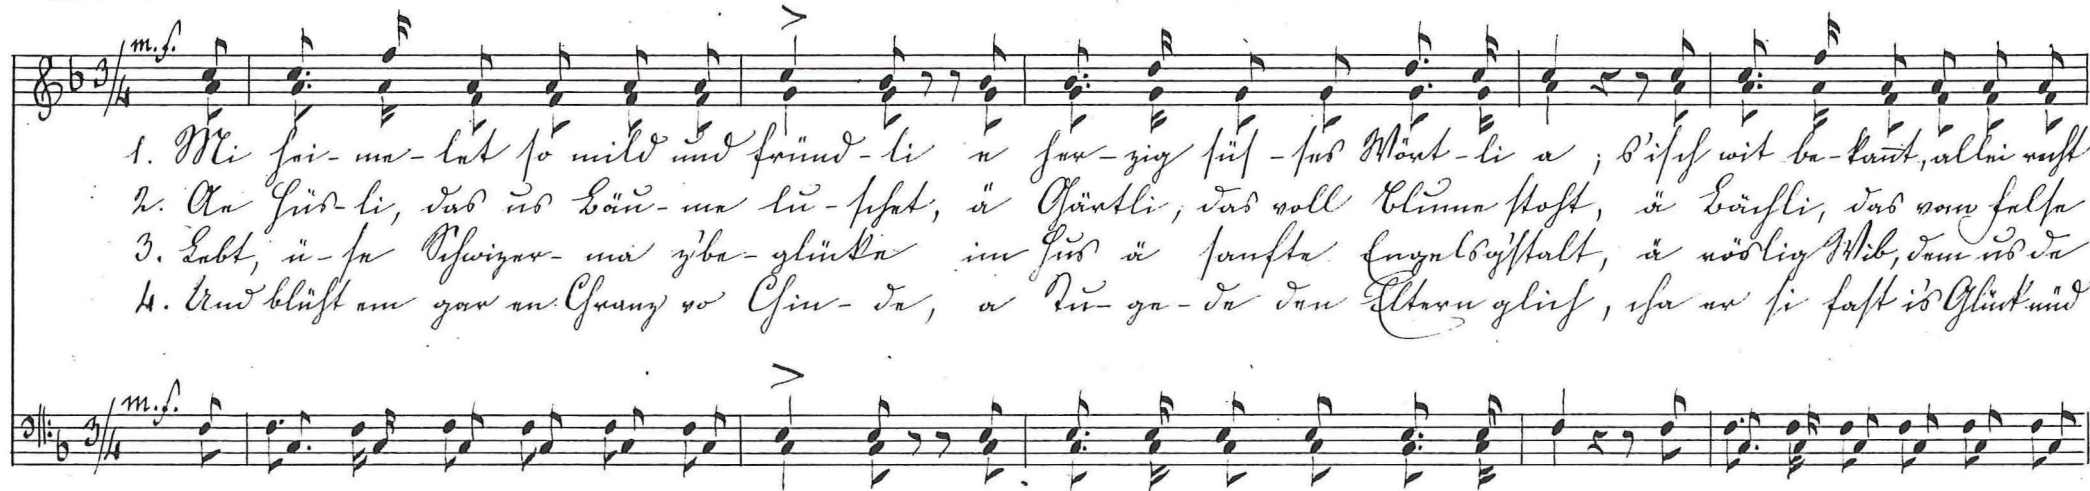 m.f.
3/4
1. Mi hei-me-let so mild und fründ-li e her-zig süs-ses Wört-li a; s'isch wit be-kannt, allei recht
2. Ae Hüs-li, das us Bäu-me lu-schet, ä Gärtli, das voll Blume stoht, ä Bächli, das vom Felse
3. Lebt, ü-se Schwizer-ma z'be-glücke im Hus ä sanfte Engelsg'stalt, ä röslig Wib, dem us de
4. Und blüht em gar en Chranz vo Chin-de, a Tu-ge-de den Eltern glich, cha er si fast i's Glück nüd
m.f.
3/4